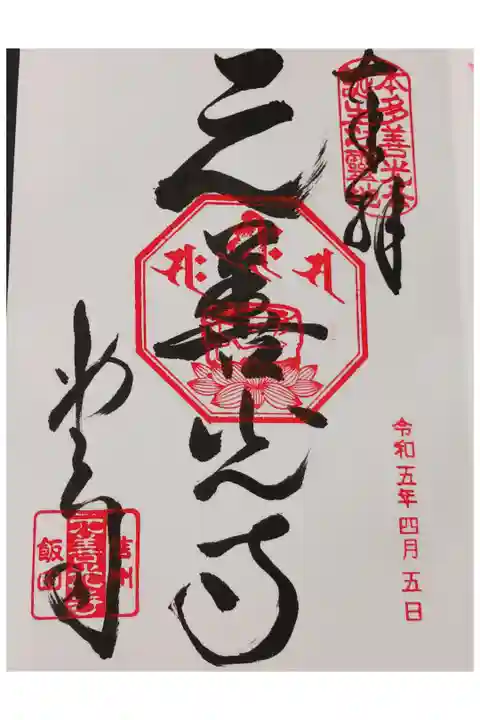 奉拝
本多善光公
令和五年四月五日
元善光寺
信州
元善光寺
飯田